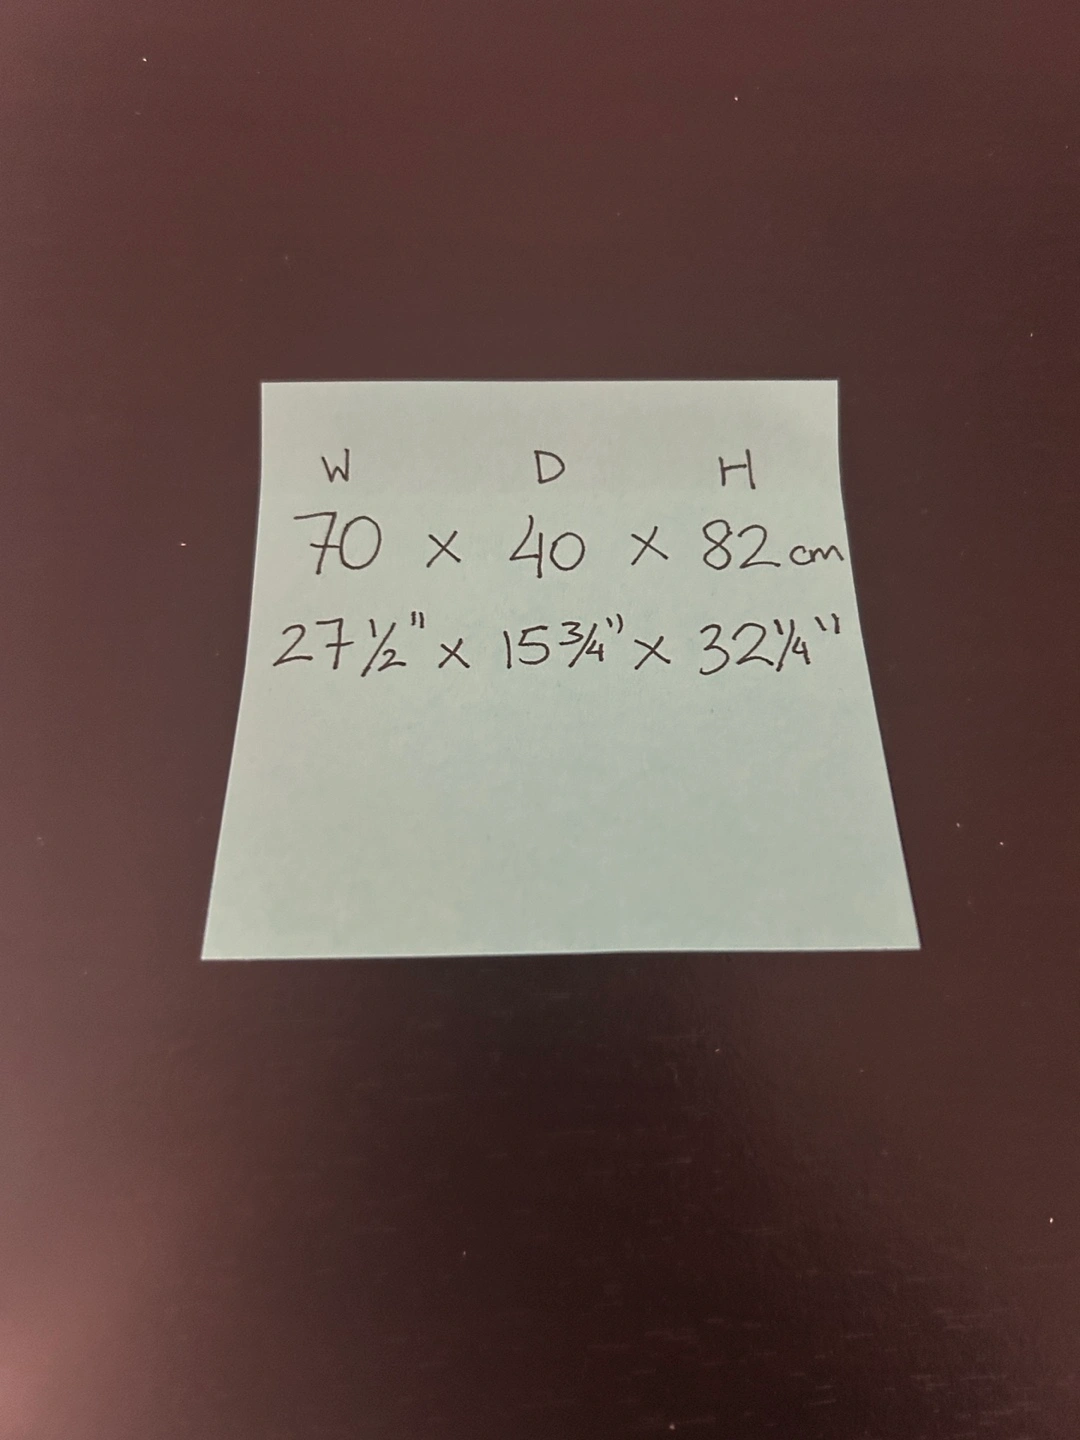 W D H
70 x 40 x 82 cm
27 1/2" x 15 3/4" x 32 1/4"